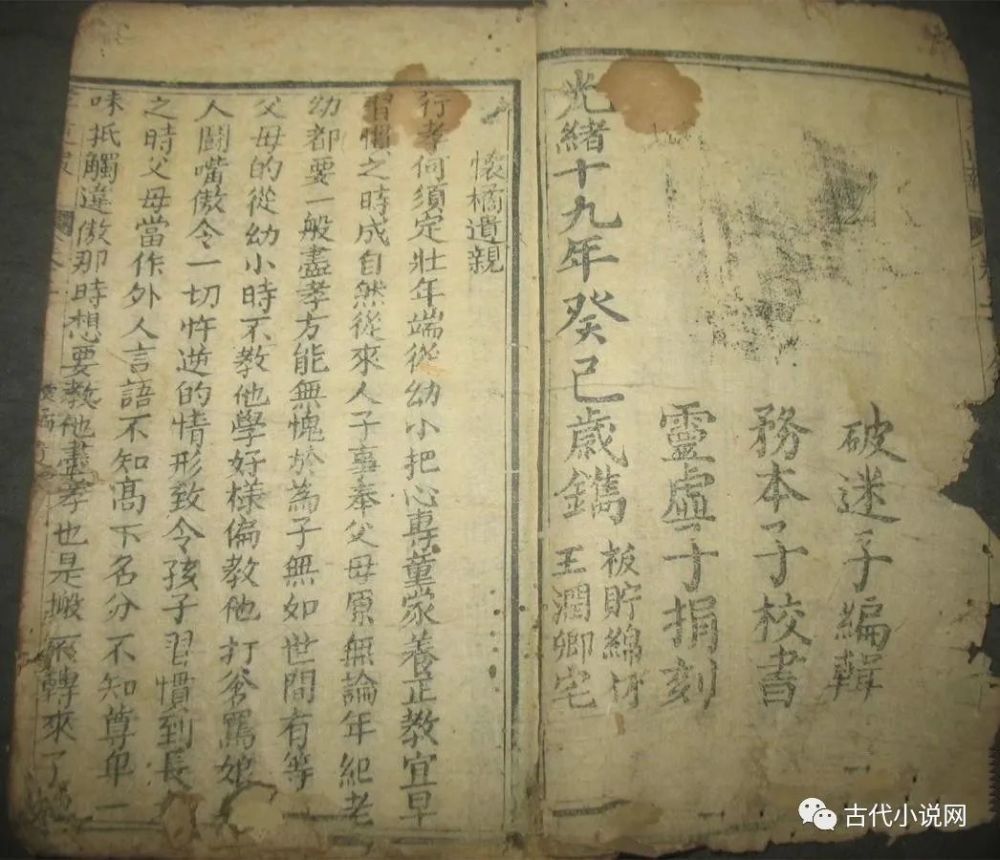 破迷子編輯
務本子校書
靈虛子捐刻
板貯綿竹
王潤卿宅
光緒十九年癸巳歲鐫
懷橘遺親
行孝何須定壯年端從幼小把心專童蒙養正教宜早
習慣之時成自然從來人子事奉父母原無論年紀老
幼都要一般盡孝方能無愧於為子無如世間有等
父母的從幼小時不教他學好樣偏教他打爹罵娘
人鬪嘴傲令一切忤逆的情形致令孩子習慣到長
之時父母當作外人言語不知髙下名分不知尊卑一
味抵觸違傲那時想要教他盡孝也是搬不轉來了
古代小说网